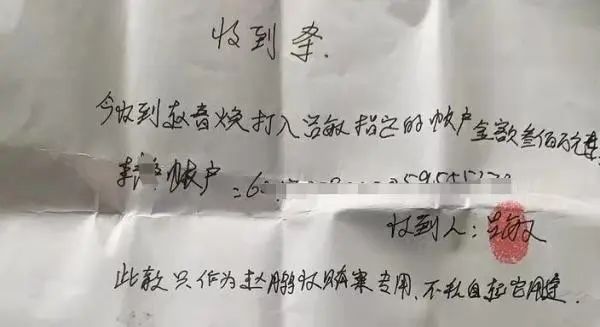 收到条.
今收到赵晋焕打入吕敏指定的帐户金额叁佰万元整
帐户:6 5951
收到人:吕敏
此款只作为赵鹏 贿案专用,不私自起它用途.